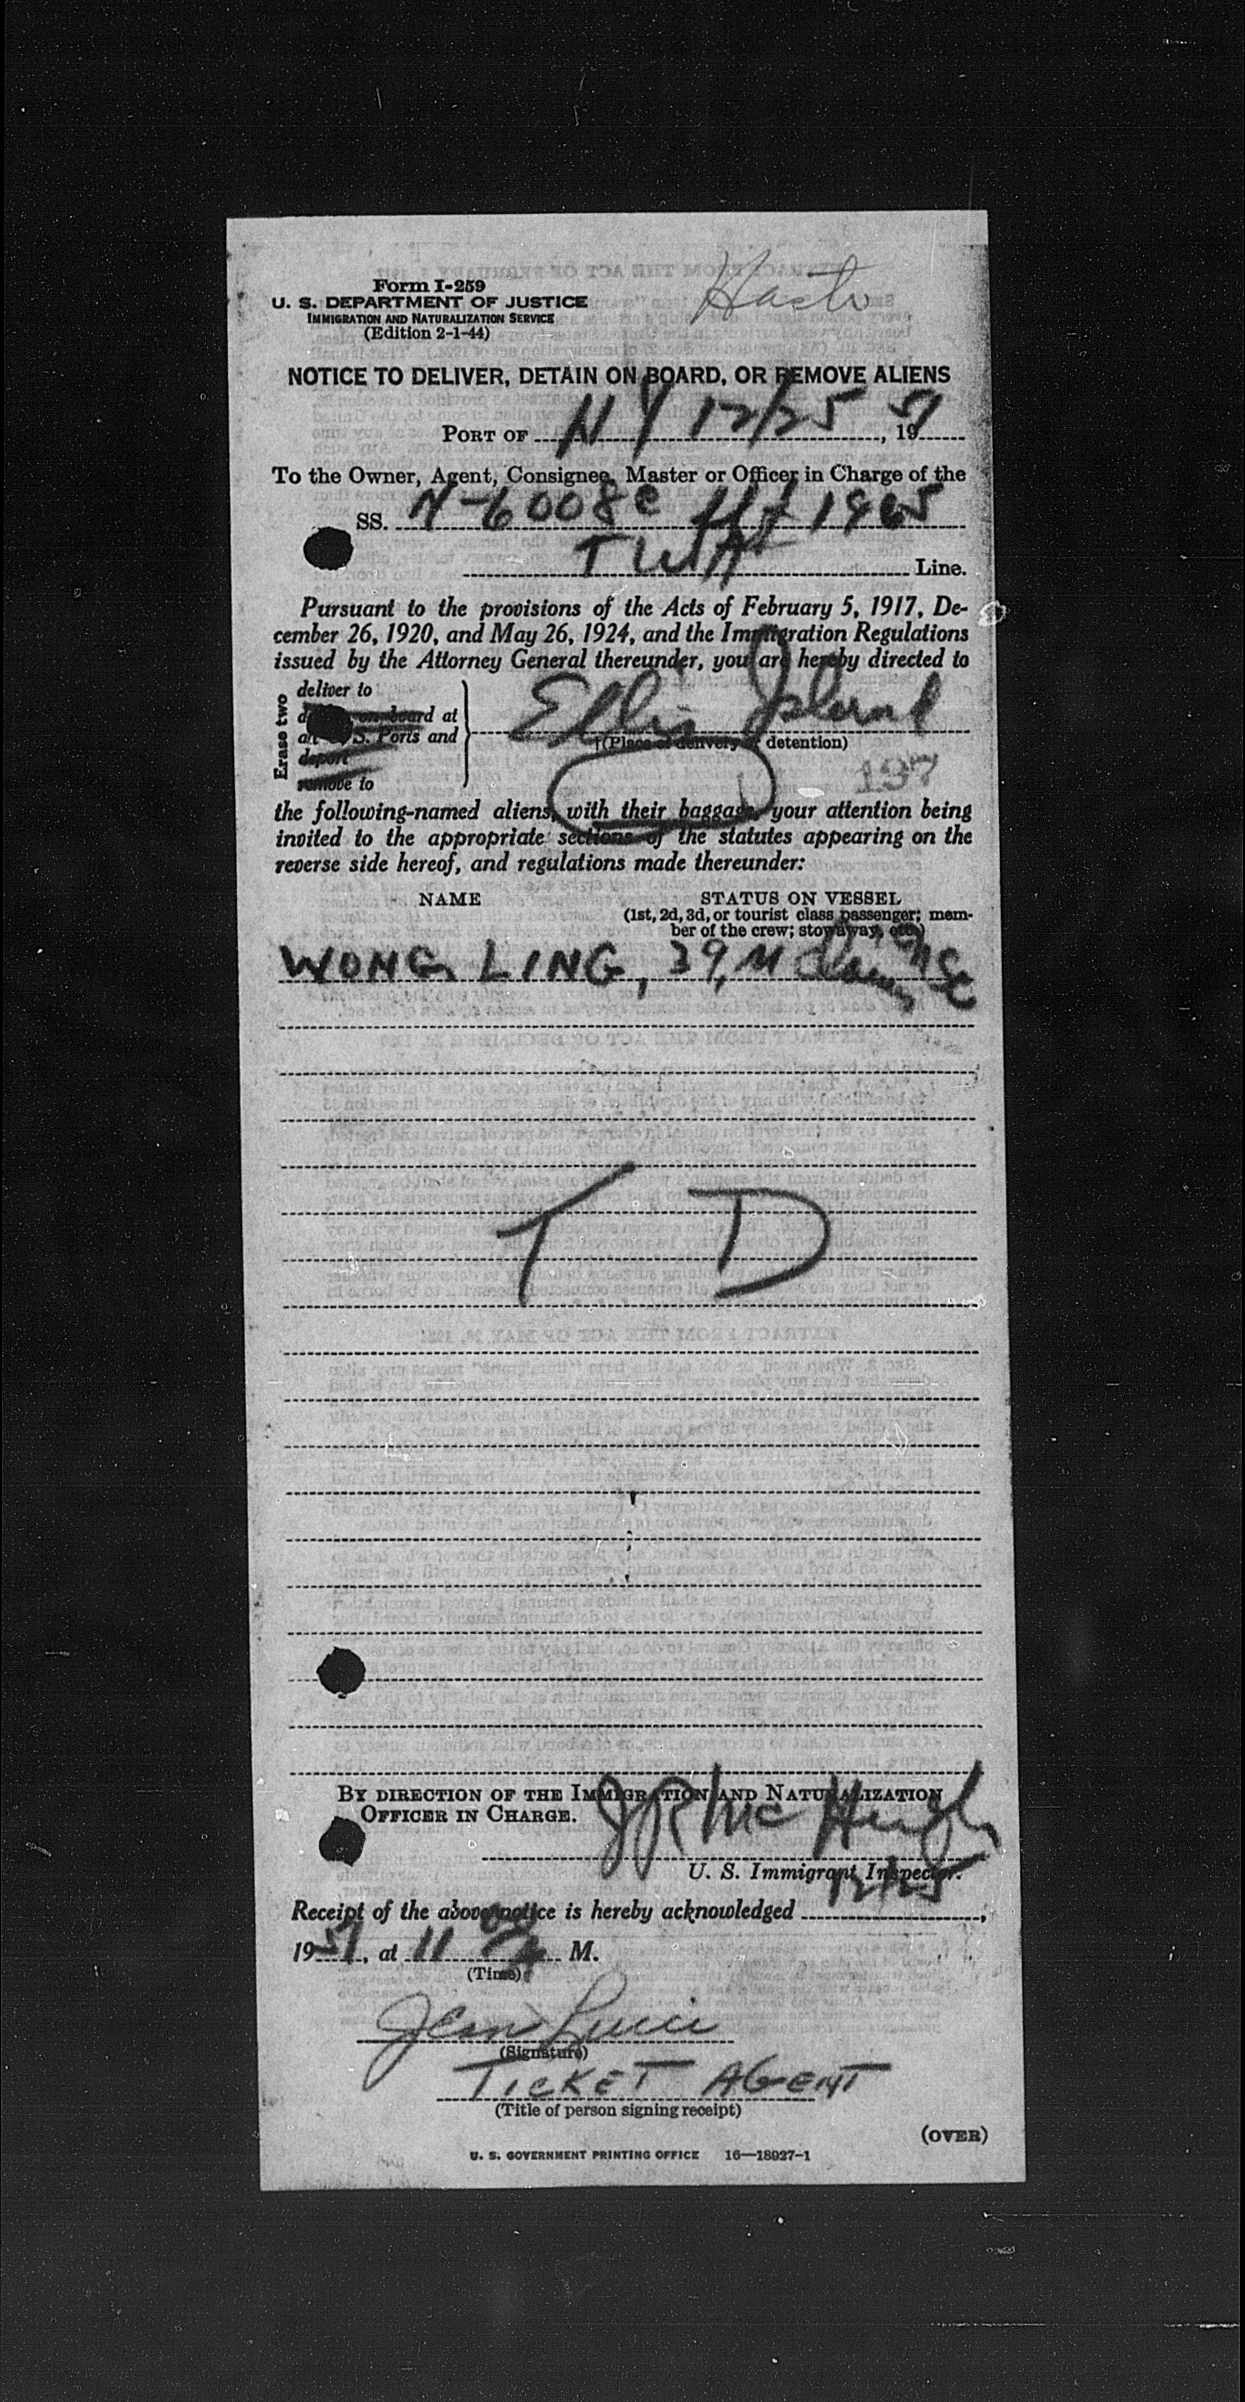 Form I-259
U. S. DEPARTMENT OF JUSTICE
IMMIGRATION AND NATURALIZATION SERVICE
(Edition 2-1-44)
NOTICE TO DELIVER, DETAIN ON BOARD, OR REMOVE ALIENS
PORT OF NY 12/25, 1951
To the Owner, Agent, Consignee, Master or Officer in Charge of the
SS. N-6008C
TWA Line.
Pursuant to the provisions of the Acts of February 5, 1917, De-
cember 26, 1920, and May 26, 1924, and the Immigration Regulations
issued by the Attorney General thereunder, you are hereby directed to
Erase two
deliver to
on board at
S. Ports and
deport
remove to
Ellis Island
(Place of delivery or detention)
197
the following-named aliens, with their baggage, your attention being
invited to the appropriate sections of the statutes appearing on the
reverse side hereof, and regulations made thereunder:
NAME STATUS ON VESSEL
(1st, 2d, 3d, or tourist class passenger; mem-
ber of the crew; stowaway, etc.)
WONG LING, 39, M
T D
BY DIRECTION OF THE IMMIGRATION AND NATURALIZATION
OFFICER IN CHARGE.
JR McHugh
U. S. Immigrant Inspector.
Receipt of the above notice is hereby acknowledged 12/25,
1951, at 11 M.
(Time)
Jean
(Signature)
TICKET AGENT
(Title of person signing receipt)
(OVER)
U. S. GOVERNMENT PRINTING OFFICE 16—18927-1